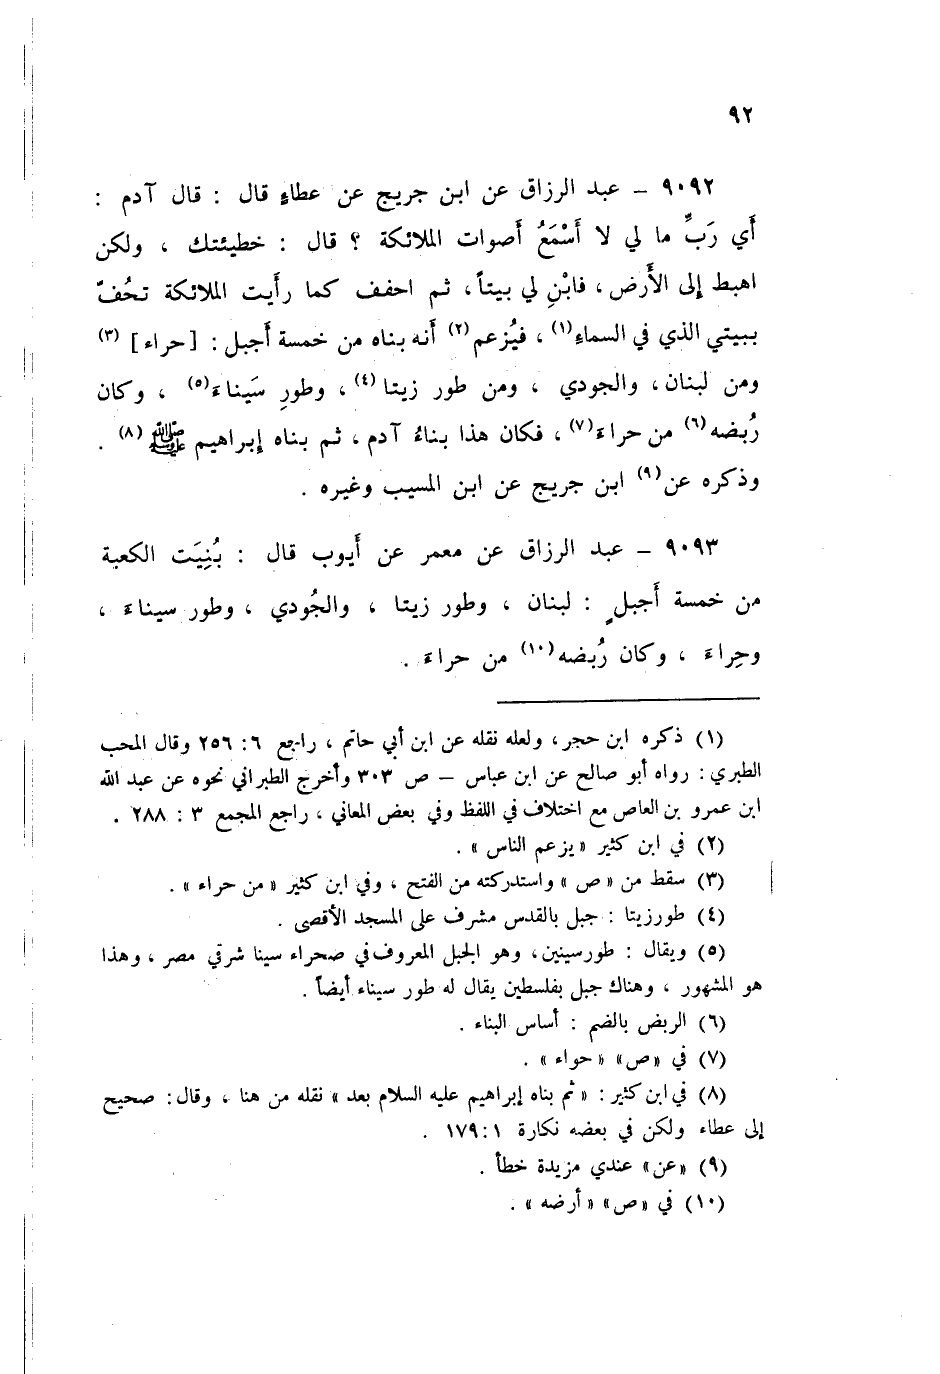 ٩٢
٩٠٩٢ ـ عبد الرزاق عن ابن جريج عن عطاءٍ قال : قال آدم :
أَي رَبِّ ما لي لا أَسْمَعُ أَصوات الملائكة ؟ قال : خطيئتك ، ولكن
اهبط إلى الأَرض ، فابْنِ لي بيتاً ، ثم احفف كما رأَيت الملائكة تحُفّ
ببيتي الذي في السماءِ(١) ، فيُزعم(٢) أَنه بناه من خمسة أَجبل : [حراء] (٣)
ومن لبنان ، والجودي ، ومن طور زيتا (٤) ، وطورِ سَيناءَ(٥) ، وكان
رُبضه(٦) من حراءَ(٧) ، فكان هذا بناءُ آدم ، ثم بناه إبراهيم ﷺ (٨) .
وذكره عن(٩) ابن جريج عن ابن المسيب وغيره .
٩٠٩٣ ـ عبد الرزاق عن معمر عن أَيوب قال : بُنِيَت الكعبة
من خمسة أَجبلٍ : لبنان ، وطور زيتا ، والجُودي ، وطور سيناءَ ،
وحِراءَ ، وكان رُبضه(١٠) من حراءَ .
(١) ذكره ابن حجر، ولعله نقله عن ابن أبي حاتم ، راجع ٦: ٢٥٦ وقال المحب
الطبري : رواه أبو صالح عن ابن عباس ـ ص ٣٠٣ وأخرج الطبراني نحوه عن عبد الله
ابن عمرو بن العاص مع اختلاف في اللفظ وفي بعض المعاني ، راجع المجمع ٣ : ٢٨٨ .
(٢) في ابن كثير «يزعم الناس» .
(٣) سقط من «ص» واستدركته من الفتح ، وفي ابن كثير «من حراء» .
(٤) طورزيتا : جبل بالقدس مشرف على المسجد الأقصى .
(٥) ويقال : طورسينين، وهو الجبل المعروف في صحراء سينا شرقي مصر ، وهذا
هو المشهور ، وهناك جبل بفلسطين يقال له طور سيناء أيضاً .
(٦) الربض بالضم : أساس البناء .
(٧) في «ص» «حواء» .
(٨) في ابن كثير : «ثم بناه إبراهيم عليه السلام بعد» نقله من هنا ، وقال : صحيح
إلى عطاء ولكن في بعضه نكارة ١ :١٧٩ .
(٩) «عن» عندي مزيدة خطأ .
(١٠) في «ص» «أرضه» .